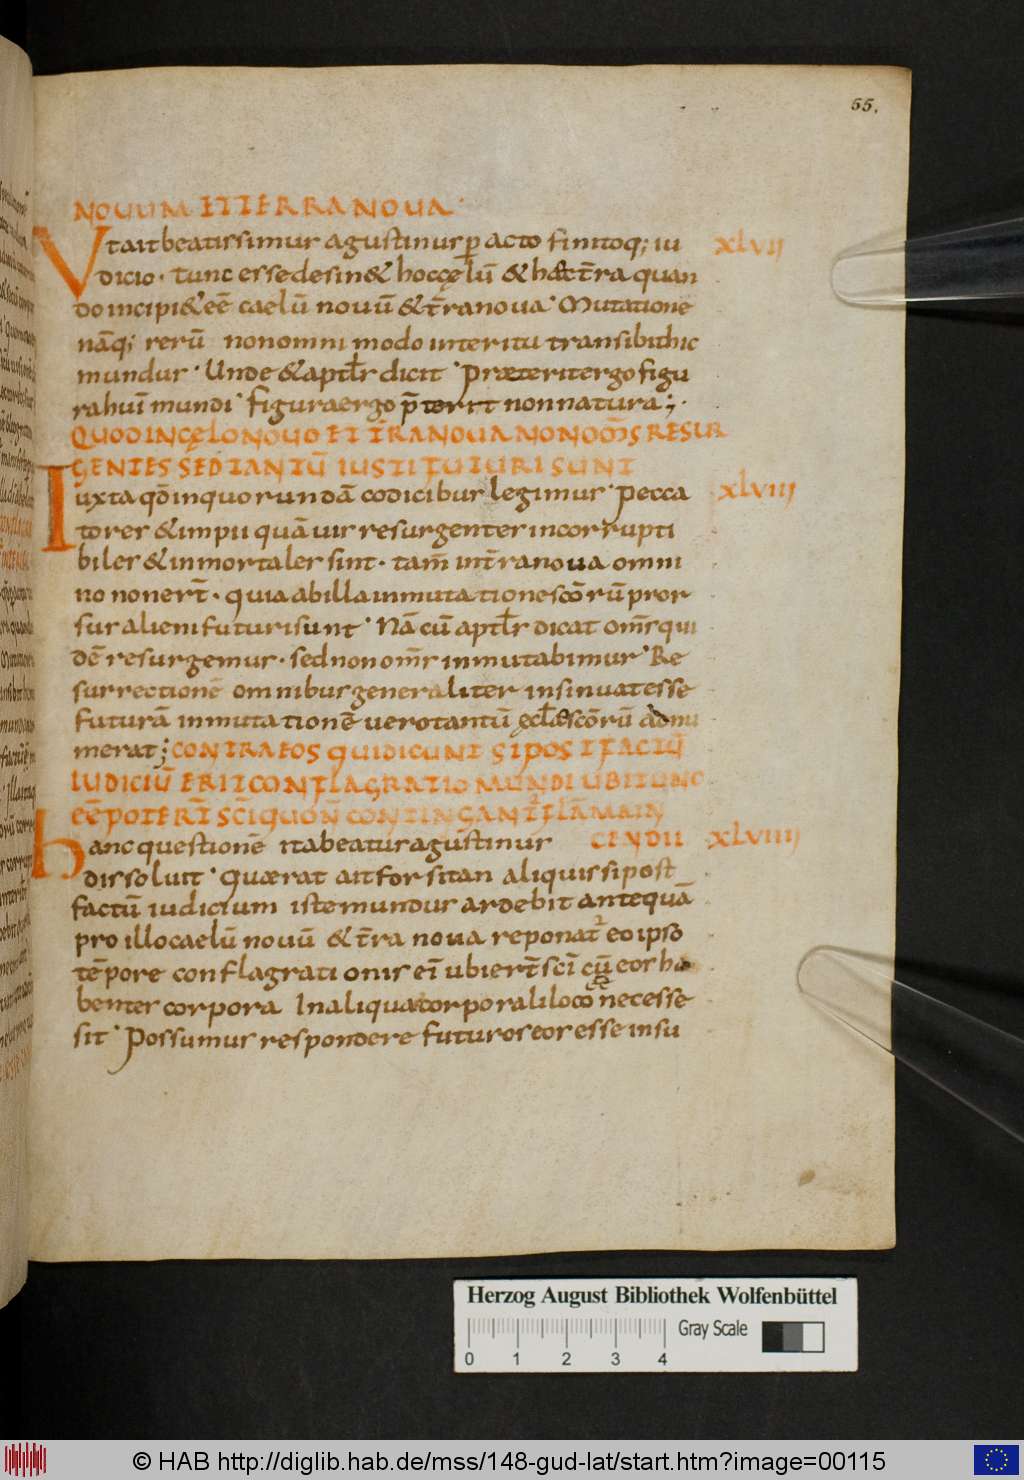 55.
NOUUM ET TERRA NOUA·
Ut ait beatissimus agustinus p acto finitoq; iu XLVII
dicio· tunc esse desin& hoc cęlū & hęc t̄ra quan
do incipi& eē caelū nouū & t̄ra noua· Mutatione
nāq; rerū non omni modo interitu transibit hic
mundus· Unde & apt̄ls dicit· Præterit ergo figu
ra hui᷒ mundi· figura ergo p̄terit non natura;·
QUOD IN CĘLO NOUO ET T̄RA NOUA NON OM̄S RESUR
GENTES SED TANTŪ IUSTI FUTURI SUNT
Iuxta qđ in quorundā codicibus legimus· Pecca XLVIII
tores & impii quāuis resurgentes incorrupti
biles & inmortales sint· tam̄ in t̄ra noua omni
no non er̄t· quia ab illa inmutatione sc̄ōrū pror
sus alieni futuri sunt· Nā cū apt̄ls dicat om̄s qui
dē resurgemus· sed non om̄s inmutabimur· Re
surrectionē omnibus generaliter insinuat esse
futurā inmutationē uero tantū ęcl̄æ sc̄ōrū adnu
merat; CONTRA EOS QUI DICUNT SI POST FACTŪ
IUDICIŪ ERIT CONFLAGRATIO MUNDI UBI TUNC
EĒ POTER̄T SC̄I QUOS N̄ CONTINGANT FLĀMA IN
Hanc questionē ita beatus agustinus CENDII XLVIIII
dissoluit· Quærat ait forsitan aliquis si post
factū iudicium iste mundus ardebit antequā
pro illo caelū nouū & t̄ra noua reponat᷑ eo ipso
tēpore conflagrationis ei᷒ ubi er̄t sc̄i cū eos ha
bentes corpora In aliqua corporali loco necesse
sit· Possumus respondere futuros eos esse in su
Herzog August Bibliothek Wolfenbüttel
Gray Scale
0 1 2 3 4
© HAB http://diglib.hab.de/mss/148-gud-lat/start.htm?image=00115